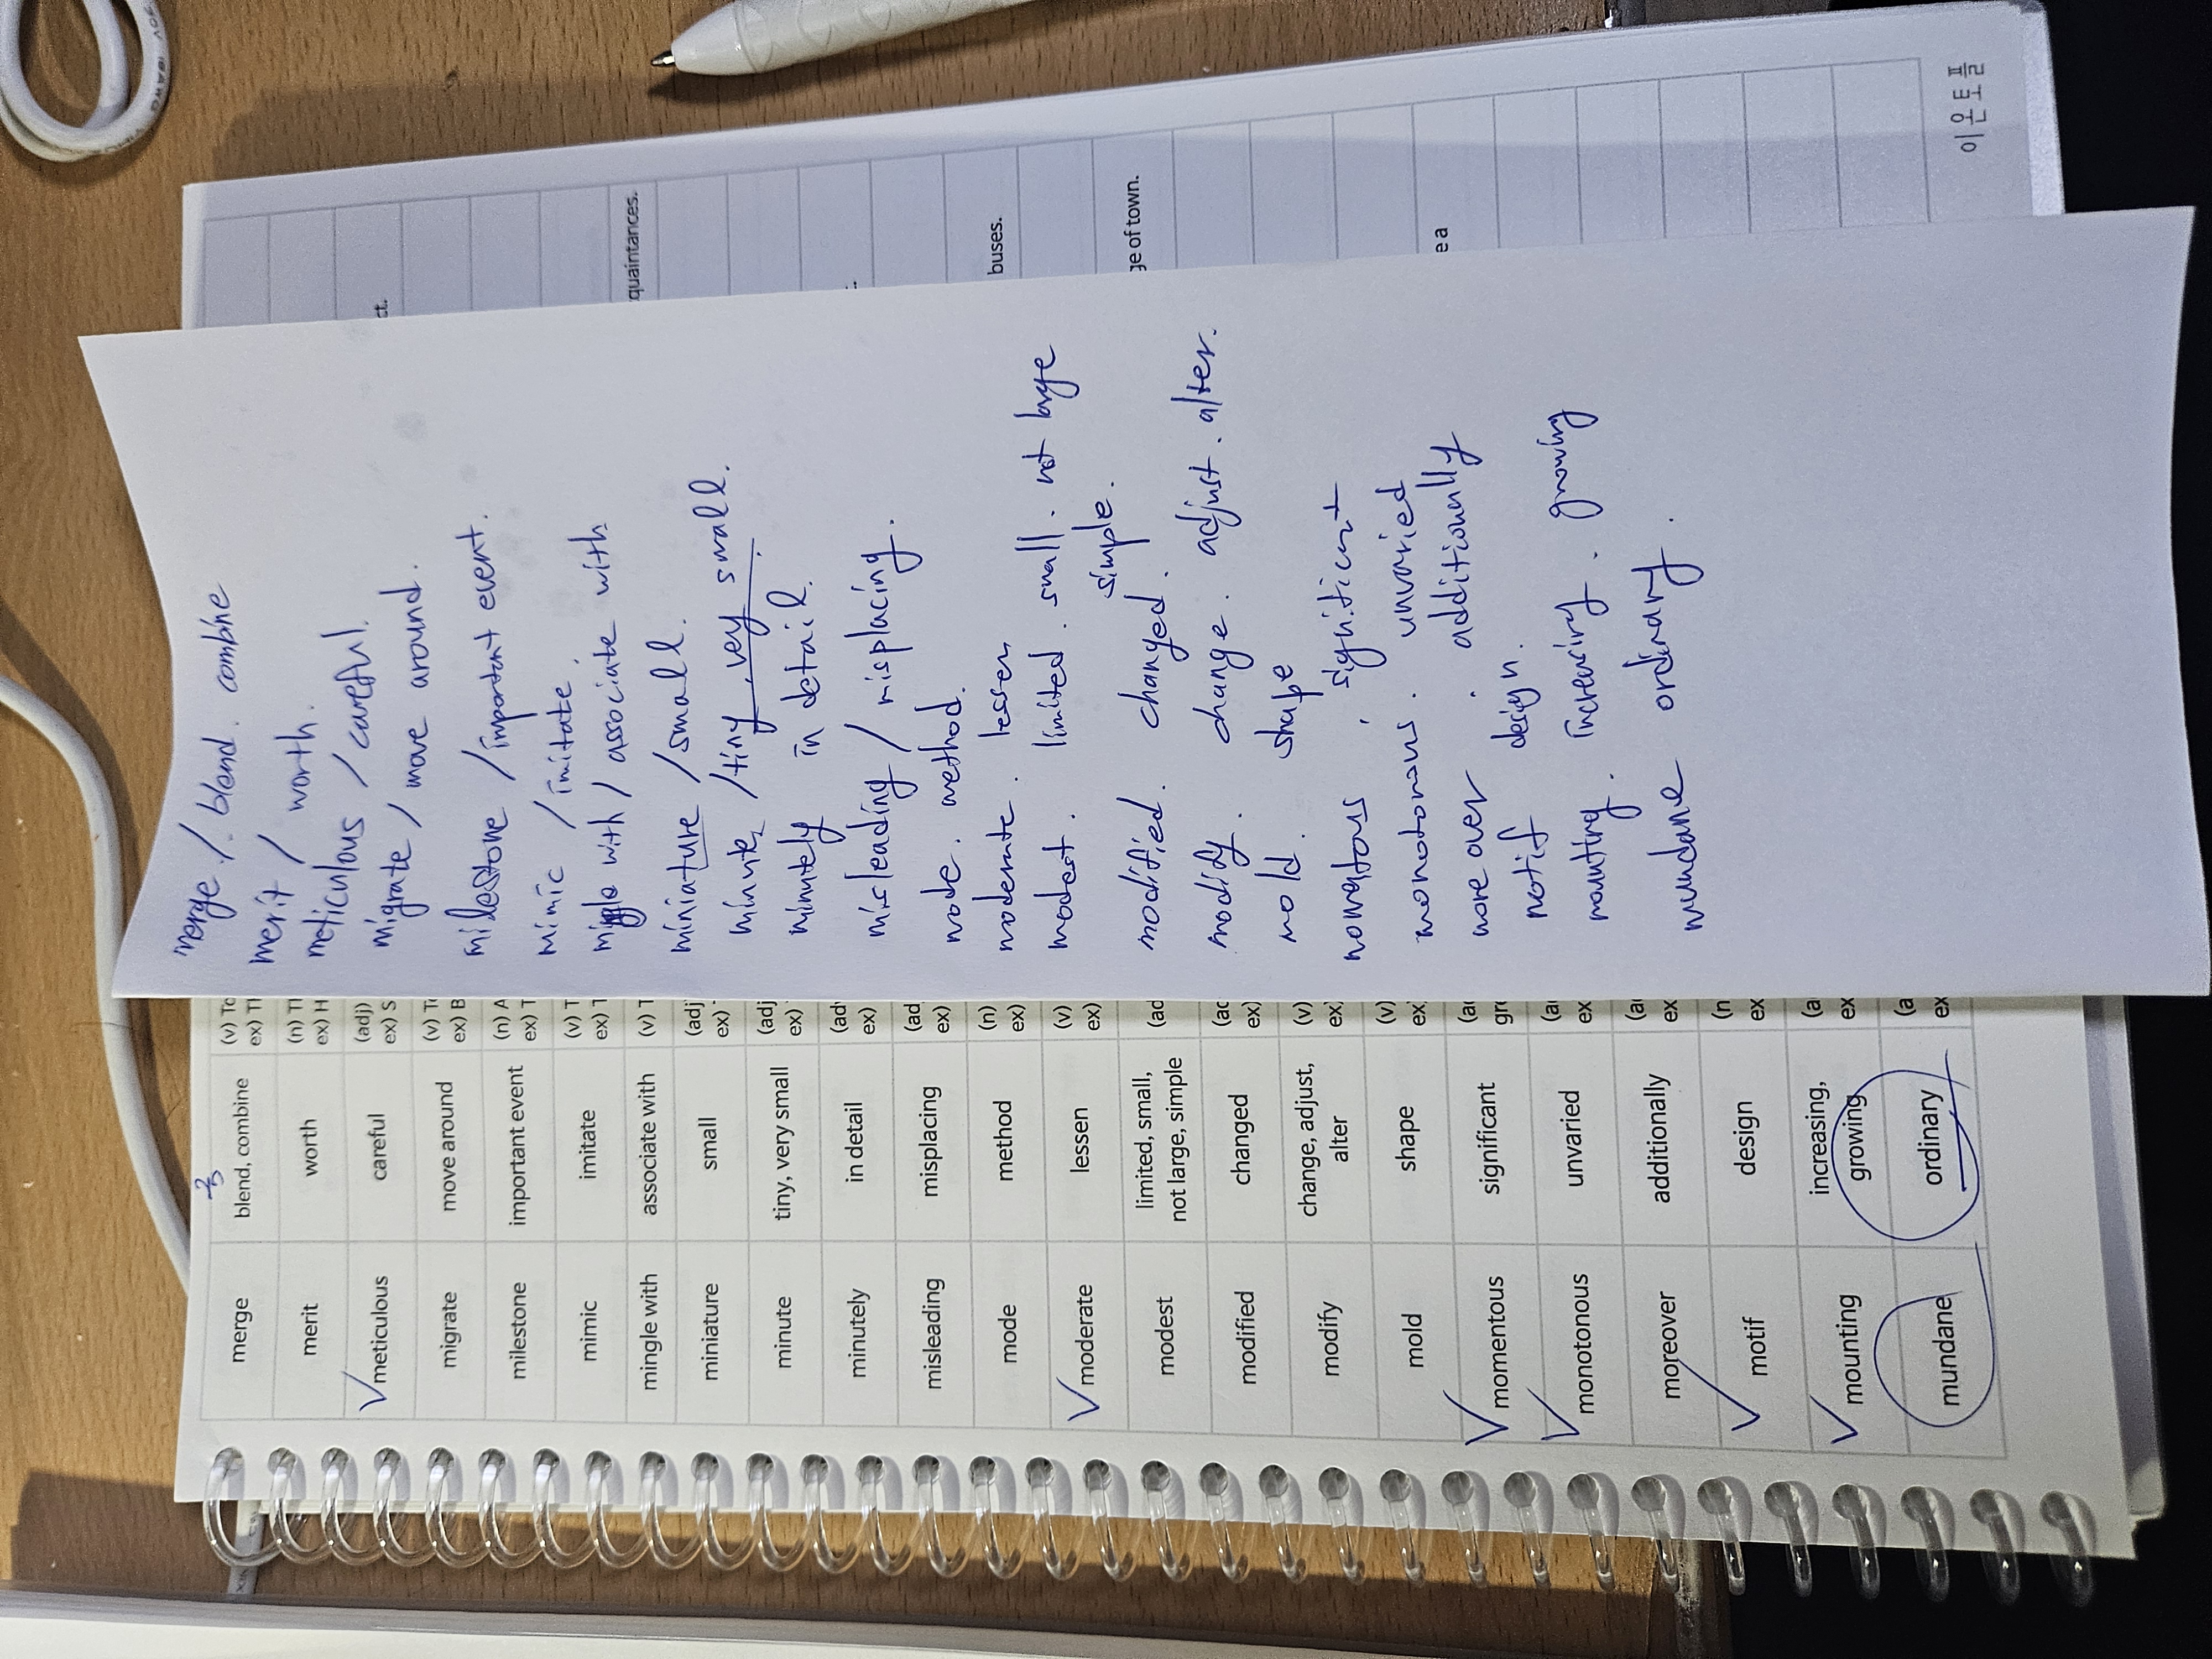 merge
blend, combine
(v) To
ex) Th
merit
worth
(n) Th
ex) H
meticulous
careful
(adj)
ex) S
migrate
move around
(v) To
ex) B
milestone
important event
(n) A
ex) T
mimic
imitate
(v) T
ex) T
mingle with
associate with
(v) T
miniature
small
(adj
ex)
minute
tiny, very small
(adj
ex)
minutely
in detail
(ad
ex)
misleading
misplacing
(ad
ex)
mode
method
(n)
ex)
moderate
lessen
(v)
ex)
modest
limited, small,
not large, simple
(ad
modified
changed
(ad
ex)
modify
change, adjust,
alter
(v)
ex)
mold
shape
(v)
ex
momentous
significant
(a
gr
monotonous
unvaried
(a
ex
moreover
additionally
(a
ex
motif
design
(n
ex
mounting
increasing,
growing
(a
ex
mundane
ordinary
(a
ex
merge / . blend . combine
merit / worth.
meticulous / careful.
migrate / move around.
milestone / important event.
mimic / imitate.
mingle with / associate with
miniature / small.
minute / tiny . very small.
minutely in detail.
misleading / misplacing.
mode. method.
moderate . lessen
modest. limited . small . not large
simple.
modified. changed.
modify. change. adjust. alter.
mold. shape
momentous . significant
monotonous . unvaried
more over . additionally
motif design.
mounting. increasing . growing
mundane ordinary.
ct.
quaintances.
buses.
ge of town.
e a
이온토플